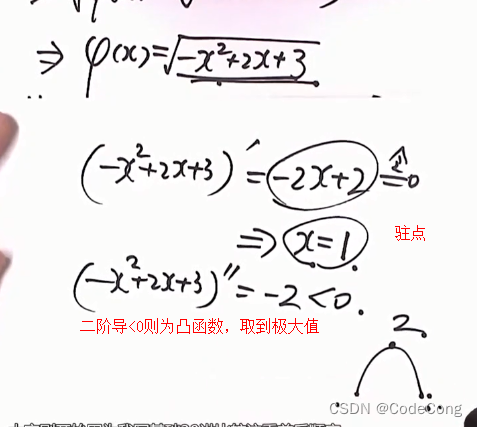 ⇒ φ(x)=√-x²+2x+3
(-x²+2x+3)′=-2x+2≜0
⇒ x=1.
驻点
(-x²+2x+3)″=-2<0.
二阶导<0则为凸函数，取到极大值
2
CSDN @CodeCong